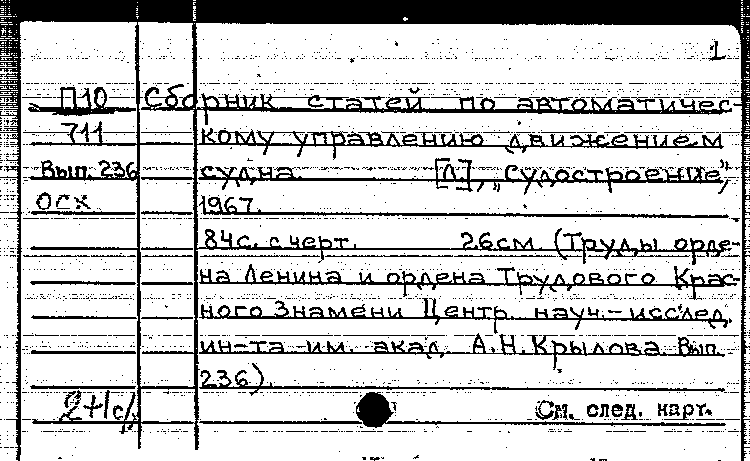 1
П10 Сборник статей по автоматичес-
711 кому управлению движением
Вып. 236 судна. [Л], „Судостроение",
ОСХ 1967.
84с. с черт. 26см. (Труды орде-
на Ленина и ордена Трудового Крас-
ного Знамени Центр. науч.-исслед.
ин-та им. акад. А.Н.Крылова. Вып.
236).
См. след. карт.